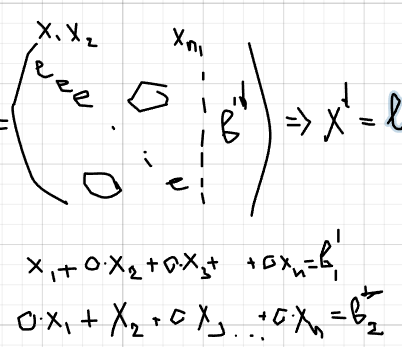 x₁ x₂ xₙ
= ( e e e 0 . . 0 e | b'↓ ) => x↓ =
x₁ + 0·x₂ + 0·x₃ + + 0xₙ = b₁'
0·x₁ + x₂ + 0 x₃ ... + 0·xₙ = b₂'